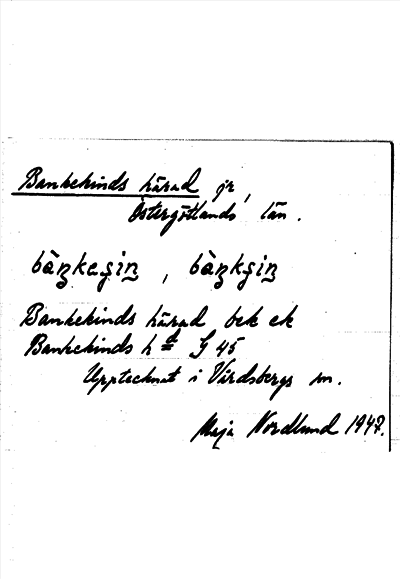 Bankekinds härad jr,
Östergötlands län.
bàŋkeşin, bàŋkşin
Bankekinds härad bek ek
Bankekinds hd G 45
Upptecknat i Vårdsbergs sn.
Maja Nordlund 1947.